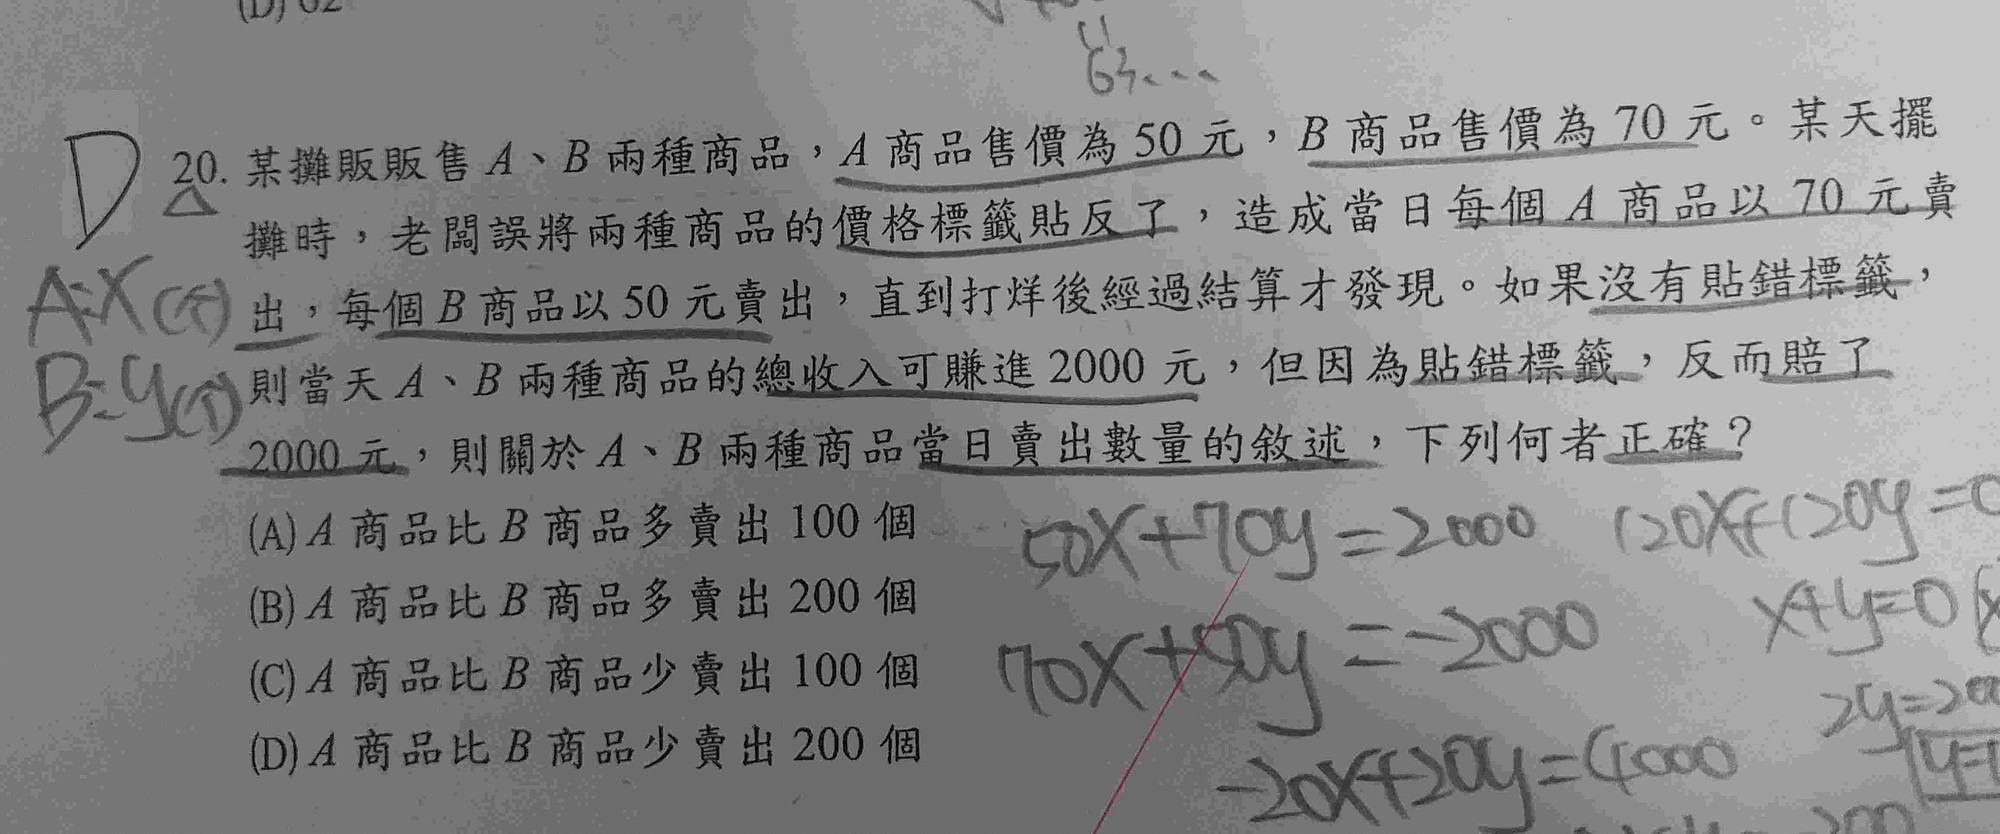 (D) 62
63...
D
20. 某攤販販售 A、B 兩種商品，A 商品售價為 50 元，B 商品售價為 70 元。某天擺
攤時，老闆誤將兩種商品的價格標籤貼反了，造成當日每個 A 商品以 70 元賣
出，每個 B 商品以 50 元賣出，直到打烊後經過結算才發現。如果沒有貼錯標籤，
則當天 A、B 兩種商品的總收入可賺進 2000 元，但因為貼錯標籤，反而賠了
2000 元，則關於 A、B 兩種商品當日賣出數量的敘述，下列何者正確？
A:X(個)
B:y(個)
(A) A 商品比 B 商品多賣出 100 個
(B) A 商品比 B 商品多賣出 200 個
(C) A 商品比 B 商品少賣出 100 個
(D) A 商品比 B 商品少賣出 200 個
50X+70y=2000
70X+50y=-2000
-20X+20y=4000
120X+120y=0
x+y=0
2y=200
y=1
200